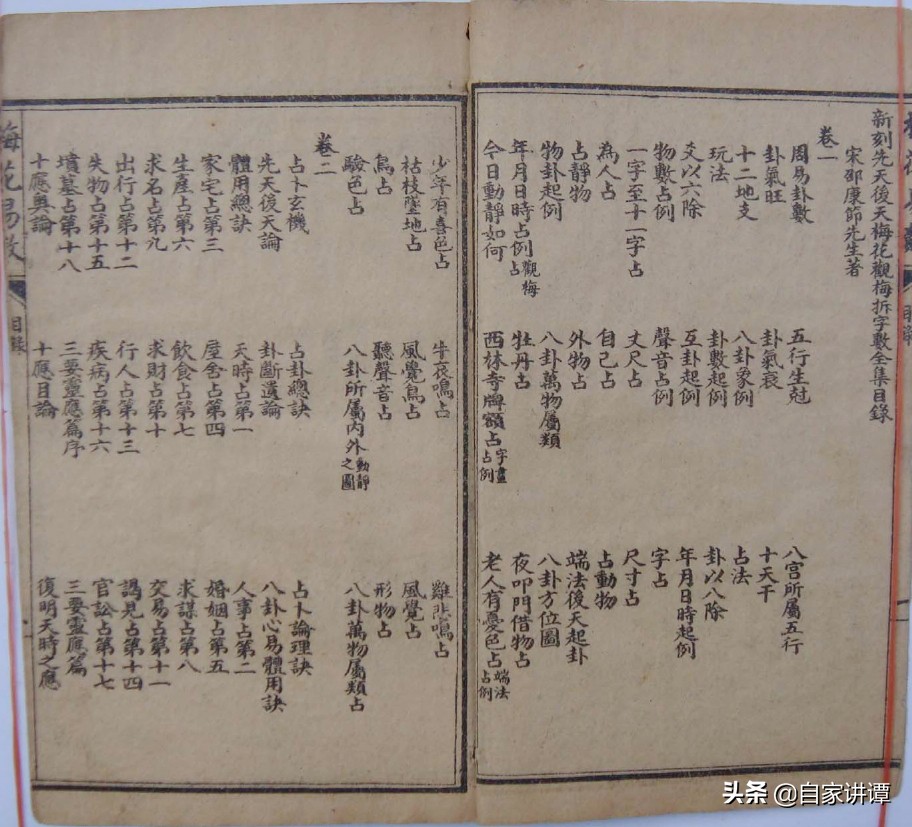 新刻先天後天梅花觀梅拆字數全集目錄
宋邵康節先生著
卷一
周易卦數 五行生尅 八宮所屬五行
卦氣旺 卦氣衰 十天干
十二地支 八卦象例 占法
玩法 卦數起例 卦以八除
爻以六除 互卦起例 年月日時起例
物數占例 聲音占例 字占
一字至十一字占 丈尺占 尺寸占
為人占 自己占 占動物
占靜物 外物占 端法後天起卦
物卦起例 八卦萬物屬類 八卦方位圖
年月日時占例觀梅占 牡丹占 夜叩門借物占
今日動靜如何 西林寺牌額占字畫占例 老人有憂色占端法占例
少年有喜色占 牛哀鳴占 雞悲鳴占
枯枝墜地占 風覺鳥占 風覺占
鳥占 聽聲音占 形物占
驗色占 八卦所屬內外動靜之圖 八卦萬物屬類占
卷二
占卜玄機 占卦總訣 占卜論理訣
先天後天論 卦斷遺論 八卦心易體用訣
體用總訣 天時占第一 人事占第二
家宅占第三 屋舍占第四 婚姻占第五
生產占第六 飲食占第七 求謀占第八
求名占第九 求財占第十 交易占第十一
出行占第十二 行人占第十三 謁見占第十四
失物占第十五 疾病占第十六 官訟占第十七
墳墓占第十八 三要靈應篇序 三要靈應篇
十應奧論 十應目論 復明天時之應
梅花易數 目錄
头条 @自家讲谭